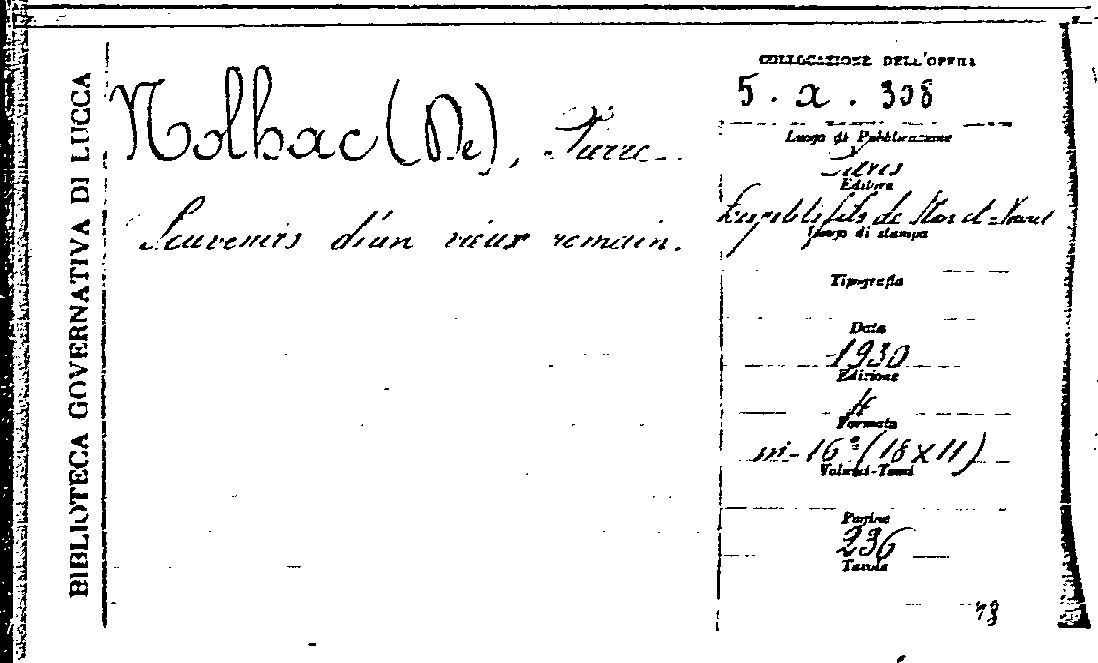 BIBLIOTECA GOVERNATIVA DI LUCCA
Nolhac (De), Pierre
Souvenirs d'un vieux romain.
COLLOCAZIONE DELL'OPERA
5. a. 308
Luogo di Pubblicazione
Paris
Editore
fils de
Luogo di stampa
Tipografia
Data
1930
Edizione
Formato
in-16° (18x11)
Volumi-Tomi
Pagine
236
Tavole